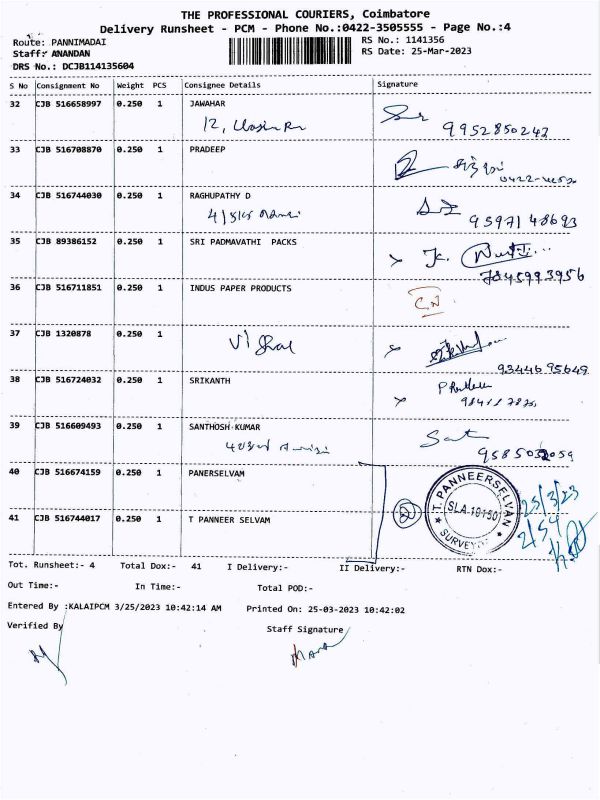 THE PROFESSIONAL COURIERS, Coimbatore
Delivery Runsheet - PCM - Phone No.:0422-3505555 - Page No.:4
Route: PANNIMADAI
RS No.: 1141356
Staff: ANANDAN
RS Date: 25-Mar-2023
DRS No.: DCJB114135604
S No Consignment No Weight PCS Consignee Details Signature
32 CJB 516658997 0.250 1 JAWAHAR
12,
9952850243
33 CJB 516708870 0.250 1 PRADEEP
0422-
34 CJB 516744030 0.250 1 RAGHUPATHY D
9597148693
35 CJB 89386152 0.250 1 SRI PADMAVATHI PACKS
7845993956
36 CJB 516711851 0.250 1 INDUS PAPER PRODUCTS
CN
37 CJB 1320878 0.250 1
Vishal
9344695649
38 CJB 516724032 0.250 1 SRIKANTH
39 CJB 516609493 0.250 1 SANTHOSH KUMAR
Sat
40 CJB 516674159 0.250 1 PANERSELVAM
T. PANNEERSELVAN
SLA-19150
SURVEYOR
25/3/23
2
41 CJB 516744017 0.250 1 T PANNEER SELVAM
Tot. Runsheet:- 4 Total Dox:- 41 I Delivery:- II Delivery:- RTN Dox:-
Out Time:- In Time:- Total POD:-
Entered By :KALAIPCM 3/25/2023 10:42:14 AM Printed On: 25-03-2023 10:42:02
Verified By Staff Signature